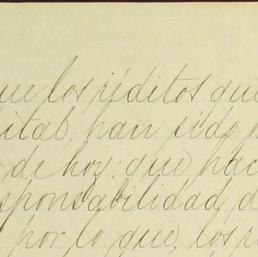 que los réditos que
ital, han sido
de hoy: que hac
sponsabilidad d
por lo que, los